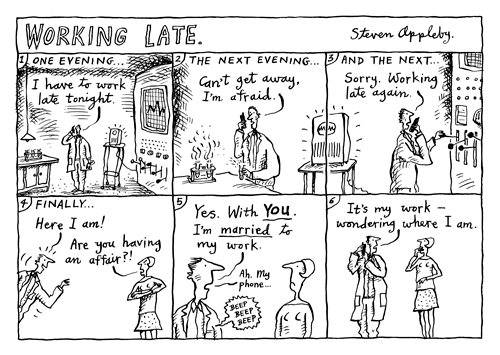 WORKING LATE.
Steven Appleby.
1 ONE EVENING...
I have to work
late tonight.
2 THE NEXT EVENING...
Can't get away,
I'm afraid.
3 AND THE NEXT...
Sorry. Working
late again.
4 FINALLY...
Here I am!
Are you having
an affair?!
5
Yes. With YOU.
I'm married to
my work.
Ah. My
phone...
BEEP
BEEP
BEEP
6
It's my work –
wondering where I am.